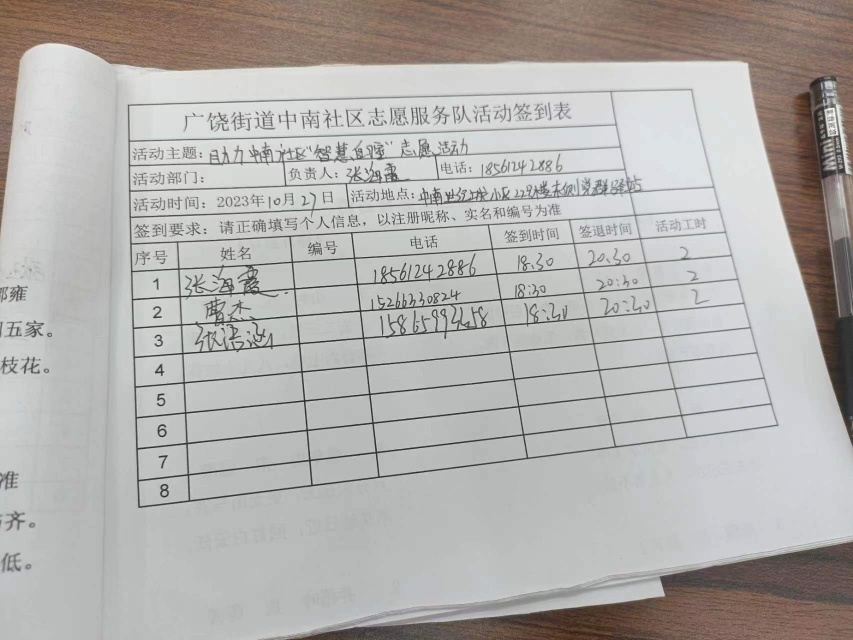 广饶街道中南社区志愿服务队活动签到表
活动主题：助力中南社区“智慧自理”志愿活动
活动部门： 负责人：张海霞 电话：18561242886
活动时间：2023年10月27日 活动地点：中南世纪城小区22#楼东侧党群驿站
签到要求：请正确填写个人信息，以注册昵称、实名和编号为准
序号 姓名 编号 电话 签到时间 签退时间 活动工时
1 张海霞 18561242886 18:30 20:30 2
2 曹杰 15266330824 18:30 20:30 2
3 张浩涵 18:30 20:30 2
4
5
6
7
8
雍
五家。
枝花。
准
齐。
低。